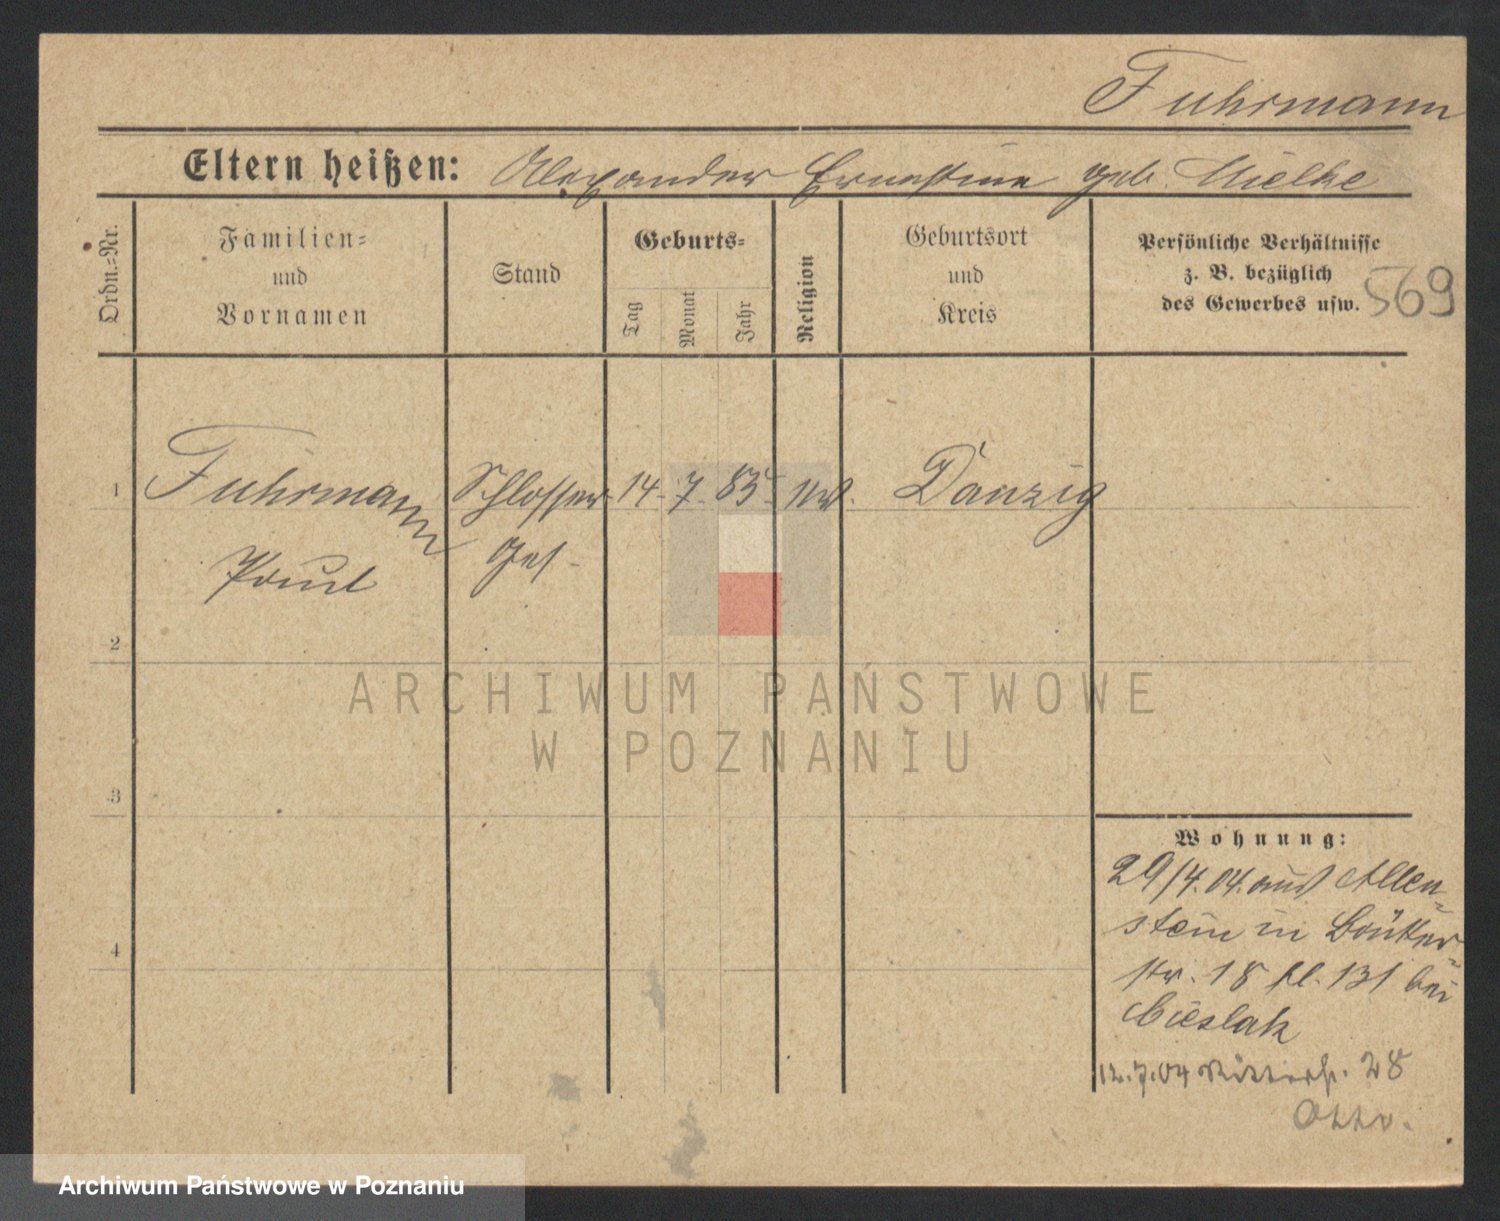 Fuhrmann
Eltern heißen: Alexander Ernestine geb. Mielke
Ordn.-Nr.
Familien-
und
Vornamen
Stand
Geburts-
Tag
Monat
Jahr
Religion
Geburtsort
und
Kreis
Persönliche Verhältnisse
z. B. bezüglich
des Gewerbes usw.
569
1 Fuhrmann Schlosser 14. 7. 85 Danzig
Paul Ges.
2
ARCHIWUM PAŃSTWOWE
W POZNANIU
3
Wohnung:
29/4.04. aus Allen-
stein in Bäcker-
str. 18 pl. 131 bei
Cieslak
4
12.7.04 Ritterstr. 28
Otto.
Archiwum Państwowe w Poznaniu